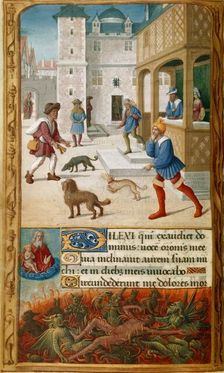 DILEXI qm exaudiet do
minus: voce oronis mee
Quia inclinavit aurem suam mi
chi: et in diebus meis invocabo
Circundederunt me dolores mor